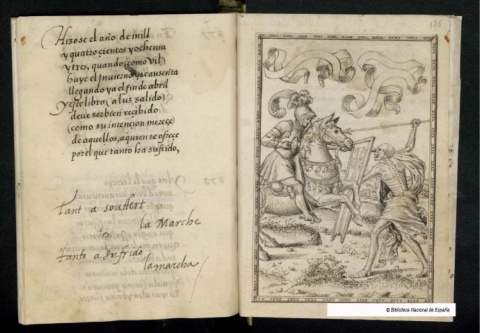 Hizose el año de mill
y quatroçientos y ochenta
y tres, quando como vil
huye el Inuierno ya causenta
llegando ya el fin de abril
y este libro (a luz salido)
deue ser bien recibido
(como su intencion mereçe)
de aquellos, a quien se ofreçe
por el que tanto ha sufrido,
Tant a souffert
la Marche
tanto a sufrido
la marcha
© Biblioteca Nacional de España